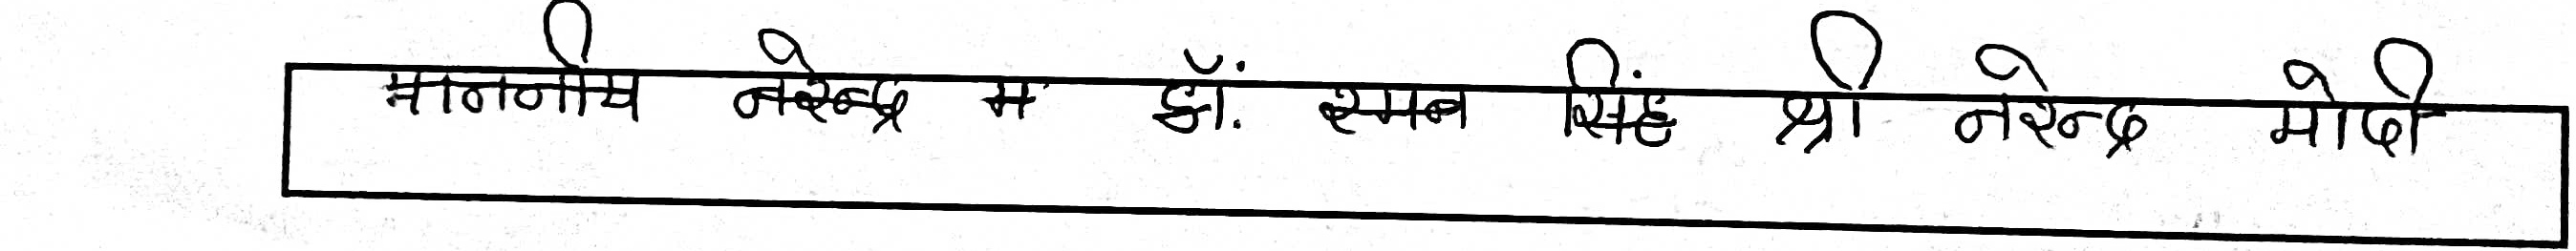 माननीय नरेन्द्र म डॉ. रमन सिंह श्री नरेन्द्र मोदी